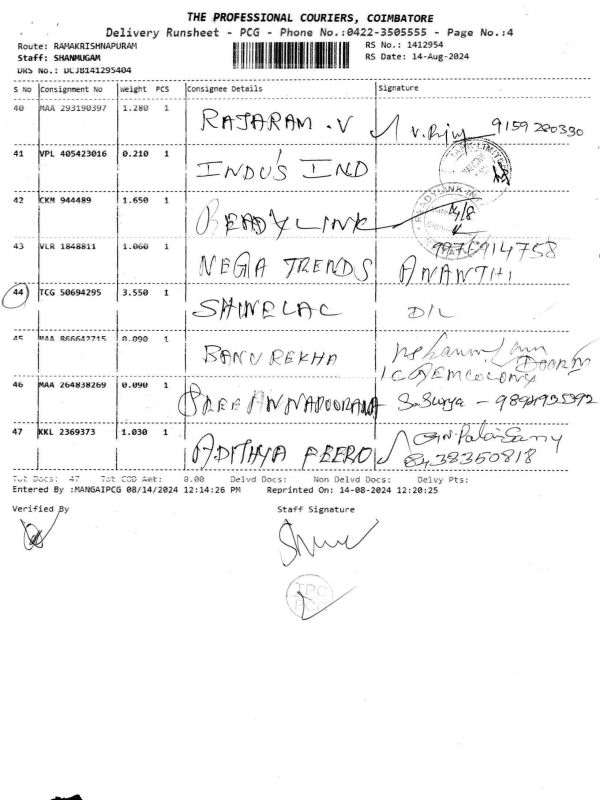 THE PROFESSIONAL COURIERS, COIMBATORE
Delivery Runsheet - PCG - Phone No.:0422-3505555 - Page No.:4
Route: RAMAKRISHNAPURAM
RS No.: 1412954
Staff: SHANMUGAM
RS Date: 14-Aug-2024
DRS No.: DCJB141295404
S No Consignment No Weight PCS Consignee Details Signature
40 MAA 293190397 1.280 1 RAJARAM .V 9159220330
41 VPL 405423016 0.210 1 INDU'S IND
42 CKM 944489 1.650 1 READY LINK 14/8
43 VLR 1848811 1.060 1 NEGIA TRENDS ANANTHI
44 TCG 50694295 3.550 1 SHINELAC D/L
45 MAA 866642715 0.090 1 BANUREKHA
46 MAA 264838269 0.090 1 SREE ANNAPOORANA S. Surya -
47 KKL 2369373 1.030 1 ADITHYA 8438350818
Tot Docs: 47 Tot COD Amt: 0.00 Delvd Docs: Non Delvd Docs: Delvy Pts:
Entered By :MANGAIPCG 08/14/2024 12:14:26 PM Reprinted On: 14-08-2024 12:20:25
Verified By Staff Signature
TPC
PCG